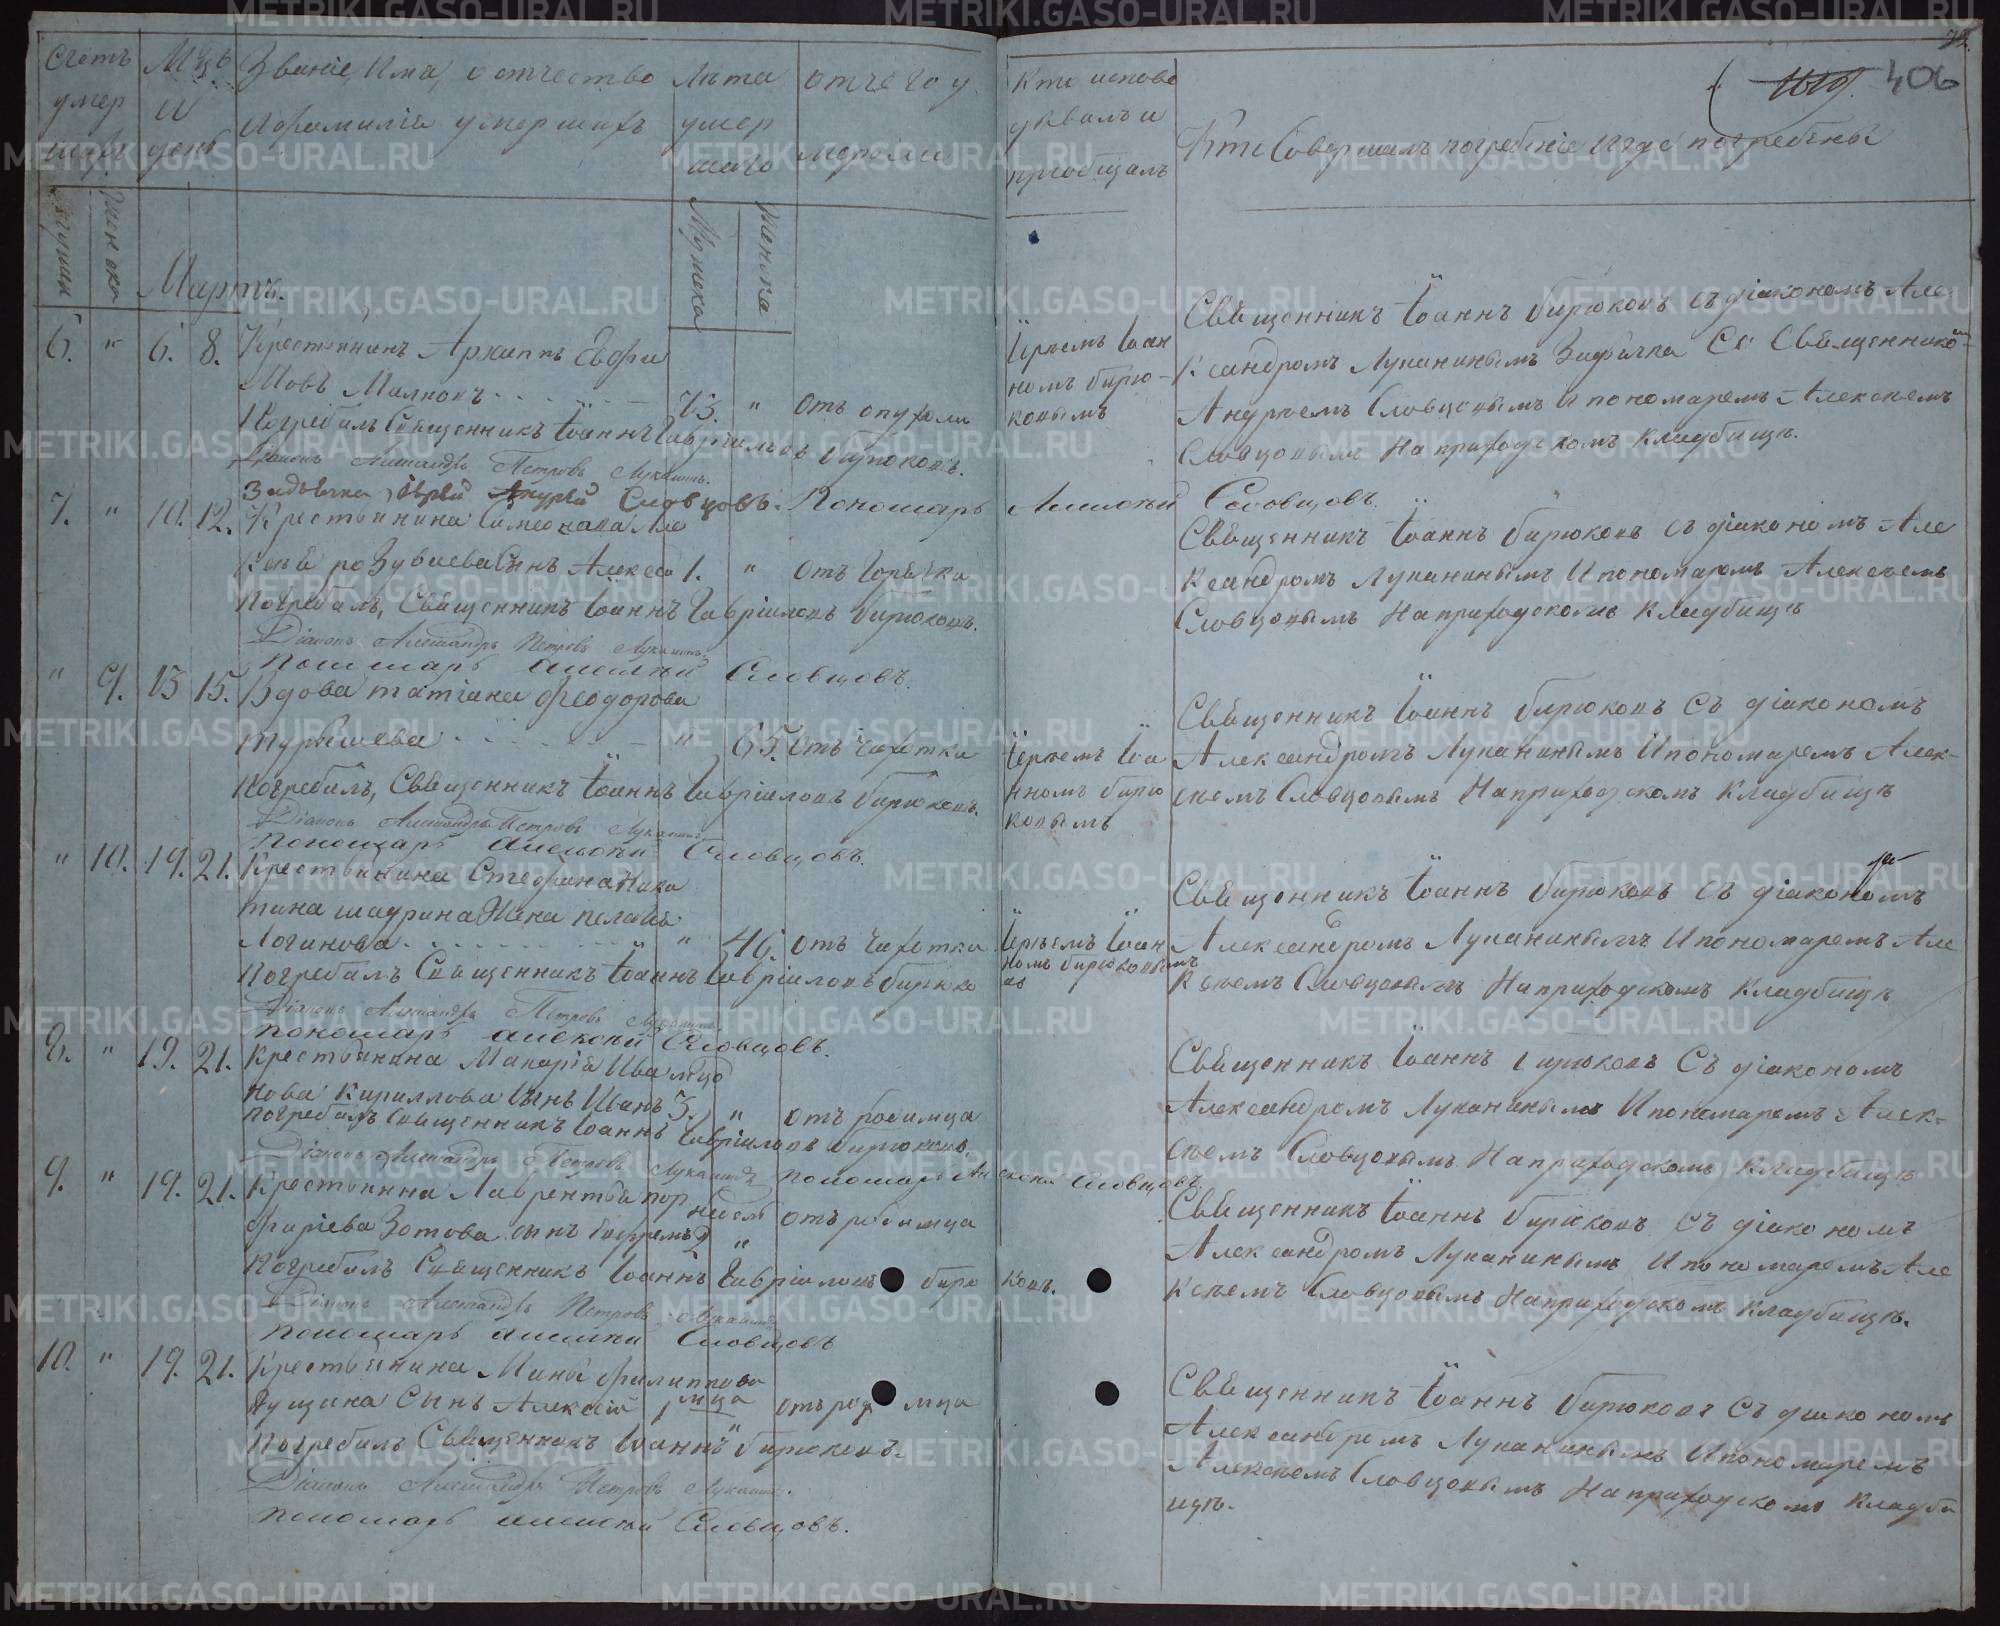 Счетъ умер шихъ
Мцъ и день
Званіе, Имя, отчество
и фамилія умершихъ
Лѣта умер шаго
отчего у
меръ
Мужска
Женска
Мартъ.
6. " 6. 8. Крестьянинъ Архиппъ Евфи
мовъ 73. " отъ опухоли
Погребалъ Священникъ Іоаннъ Гавріиловъ Бирюковъ.
Діаконъ Александръ Петровъ Луканинъ.
Іерей Андрей Словцовъ. Пономарь Алексѣй Словцовъ.
7. " 10. 12. Крестьянина
сынъ Алексѣй 1. " отъ горячки
Погребалъ, Священникъ Іоаннъ Гавріиловъ Бирюковъ.
Діаконъ Александръ Петровъ Луканинъ.
Пономарь Алексѣй Словцовъ.
" 9. 13 15. Вдова Татіана Феодорова
" 65. отъ чахотки
Погребалъ, Священникъ Іоаннъ Гавріиловъ Бирюковъ.
Діаконъ Александръ Петровъ Луканинъ
Пономарь Алексѣй Словцовъ.
" 10. 19. 21. Крестьянина Стефана Ники
тина Шадрина жена Пелагія
Логинова " 46. отъ чахотки
Погребалъ Священникъ Іоаннъ Гавріиловъ Бирюко
Діаконъ Александръ Петровъ Луканинъ
Пономарь Алексѣй Словцовъ.
8. " 19. 21. Крестьянина Макарія Ива
нова Кириллова сынъ Иванъ 3. " отъ родимца
Погребалъ Священникъ Іоаннъ Гавріиловъ Бирюковъ.
Діаконъ Александръ Петровъ Луканинъ Пономарь Алексѣй Словцовъ.
9. " 19. 21. Крестьянина Лаврентія Пор
фиріева Зотова сынъ Ефремъ 2 недель " отъ родимца
Погребалъ Священникъ Іоаннъ Гавріиловъ Бирюковъ.
Діаконъ Александръ Петровъ Луканинъ
Пономарь Алексѣй Словцовъ
10. " 19. 21. Крестьянина Мины Филиппова
сынъ Алексій 1 мца " отъ родимца
Погребалъ Священникъ Іоаннъ Бирюковъ.
Діаконъ Александръ Петровъ Луканинъ.
Пономарь Алексѣй Словцовъ.
406
Кто испове
дывалъ и
пріобщалъ
Кто совершалъ погребеніе и где погребены
Іереемъ Іоан
номъ Бирю-
ковымъ
Священникъ Іоаннъ Бирюковъ съ діакономъ Але
ксандромъ Луканинымъ
Андреемъ Словцовымъ и пономаремъ Алексѣемъ
Словцовымъ на приходскомъ кладбищѣ.
Священникъ Іоаннъ Бирюковъ съ діакономъ Але
ксандромъ Луканинымъ и пономаремъ Алексѣемъ
Словцовымъ на приходскомъ кладбищѣ
Іереемъ Іоа
нномъ Бирю
ковымъ
Священникъ Іоаннъ Бирюковъ съ діакономъ
Александромъ Луканинымъ и пономаремъ Алек-
сѣемъ Словцовымъ на приходскомъ кладбищѣ
Іереемъ Іоан
номъ Бирюковымъ
Священникъ Іоаннъ Бирюковъ съ діакономъ
Александромъ Луканинымъ и пономаремъ Але
ксѣемъ Словцовымъ на приходскомъ кладбищѣ
Священникъ Іоаннъ Бирюковъ съ діакономъ
Александромъ Луканинымъ и пономаремъ Алек-
сѣемъ Словцовымъ на приходскомъ кладбищѣ
Священникъ Іоаннъ Бирюковъ съ діакономъ
Александромъ Луканинымъ и пономаремъ Але
ксѣемъ Словцовымъ на приходскомъ кладбищѣ.
Священникъ Іоаннъ Бирюковъ съ діакономъ
Александромъ Луканинымъ и пономаремъ
Алексѣемъ Словцовымъ на приходскомъ кладби
щѣ.
METRIKI.GASO-URAL.RU